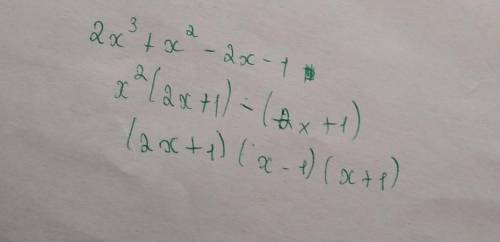 2x³ + x² - 2x - 1
x²(2x+1) - (2x+1)
(2x+1)(x-1)(x+1)